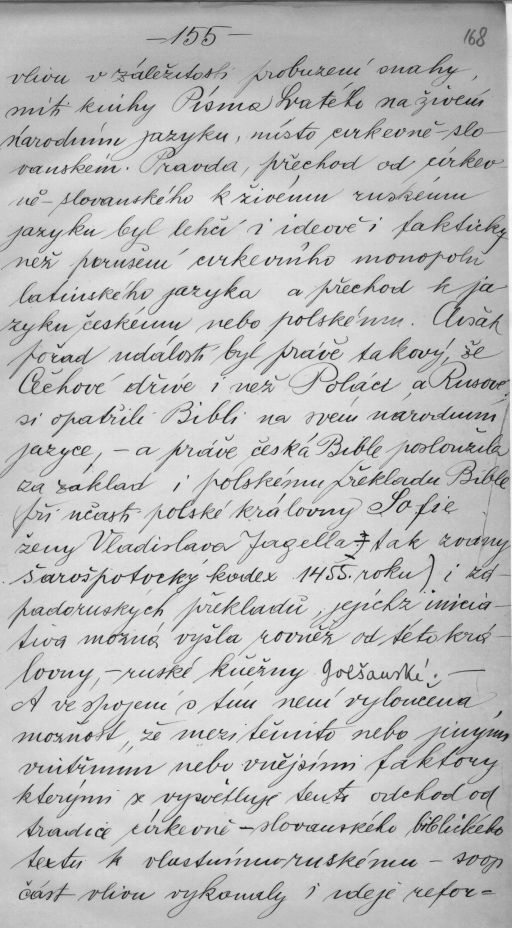 -155-
168
vlivu v záležitosti probuzení snahy,
míti knihy Písma Svatého na živém
národním jazyku, místo církevně-slo-
vanském. Pravda, přechod od církev
ně-slovanského k živému ruskému
jazyku byl lehčí i ideově i fakticky
než porušení církevního monopolu
latinského jazyka a přechod k ja
zyku českému nebo polskému. Avšak
pořad událostí byl právě takový, že
Čechové dříve i než Poláci a Rusové
si opatřili Bibli na svém národním
jazyce, - a právě česká Bible posloužila
za základ i polskému překladu Bible
při účasti polské královny Sofie
ženy Vladislava Jagella tak zvaný
Šarošpotocký kodex 1455. roku) i zá-
padoruských překladů, jejichž inicia-
tiva možná vyšla rovněž od této krá-
lovny, - ruské kněžny Golšanské. -
A ve spojení s tím není vyloučena
možnost, že mezi těmito nebo jinými
vnitřními nebo vnějšími faktory
kterými se vysvětluje tento odchod od
tradice církevně-slovanského biblického
textu k vlastnímu ruskému - svoji
část vlivu vykonaly i ideje refor=